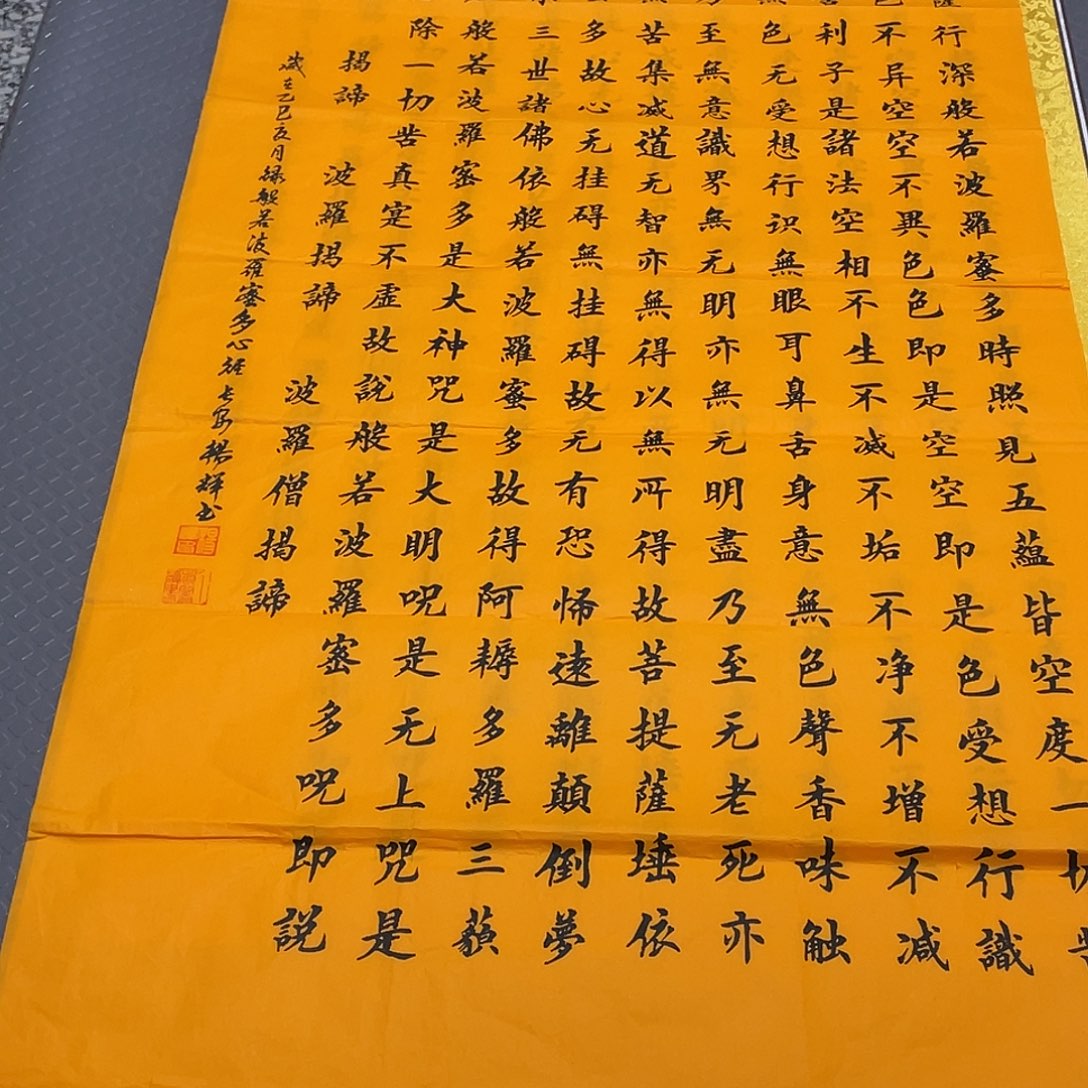 行深般若波羅蜜多時照見五蘊皆空度一切
不异空空不異色色即是空空即是色受想行識
利子是諸法空相不生不减不垢不净不增不减
色无受想行识無眼耳鼻舌身意無色聲香味触
至無意識界無无明亦無无明盡乃至无老死亦
苦集减道无智亦無得以無所得故菩提薩埵依
多故心无挂碍無挂碍故无有恐怖遠離顛倒夢
三世諸佛依般若波羅蜜多故得阿耨多羅三藐
般若波羅蜜多是大神咒是大明呪是无上咒是
除一切苦真寔不虚故說般若波羅蜜多呪即説
揭諦 波羅揭諦 波羅僧揭諦
歲在乙巳亥月録般若波羅蜜多心經长安楊輝书